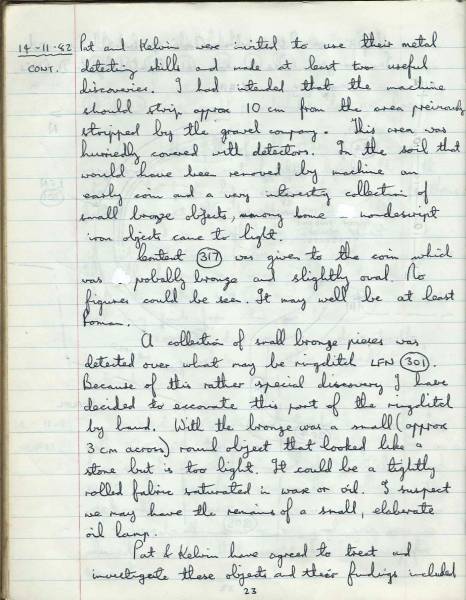 14-11-82 Pat and Kelvin were invited to use their metal
CONT. detecting skills and made at least two useful
discoveries. I had intended that the machine
should strip approx 10 cm from the area previously
stripped by the gravel company. This area was
hurriedly covered with detectors. In the soil that
would have been removed by machine an
early coin and a very interesting collection of
small bronze objects, among some nondescript
iron objects came to light.
Context 317 was given to the coin which
was probably bronze and slightly oval. No
figures could be seen. It may well be at least
Roman.
A collection of small bronze pieces was
detected over what may be ringditch LFN 301.
Because of this rather special discovery I have
decided to excavate this part of the ringditch
by hand. With the bronze was a small (approx
3 cm across) round object that looked like a
stone but is too light. It could be a tightly
rolled fabric saturated in wax or oil. I suspect
we may have the remains of a small, elaborate
oil lamp.
Pat & Kelvin have agreed to treat and
investigate these objects and their findings included
23